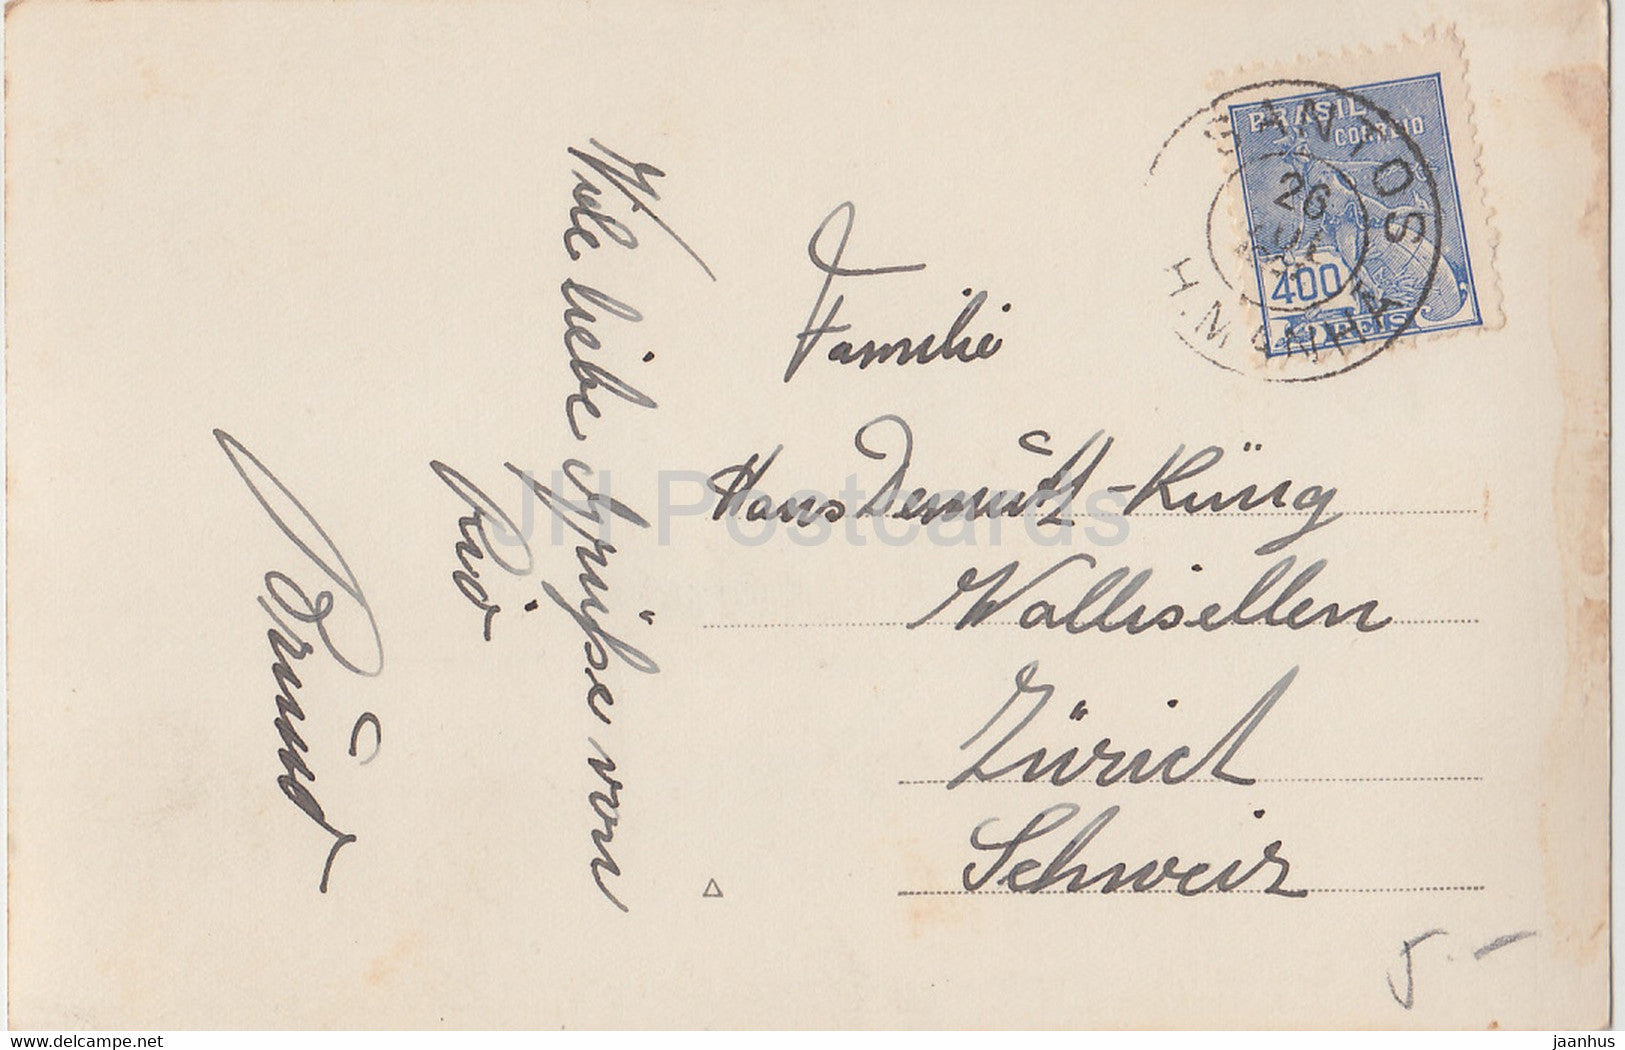 Viele liebe Grüsse von
Brund
BRASIL
CORREIO
400
REIS
SANTOS
26
JUL
Familie
Hans Demuth-Küng
Wallisellen
Zürich
Schweiz
5.-
JH Postcards
www.delcampe.net
jaanhus